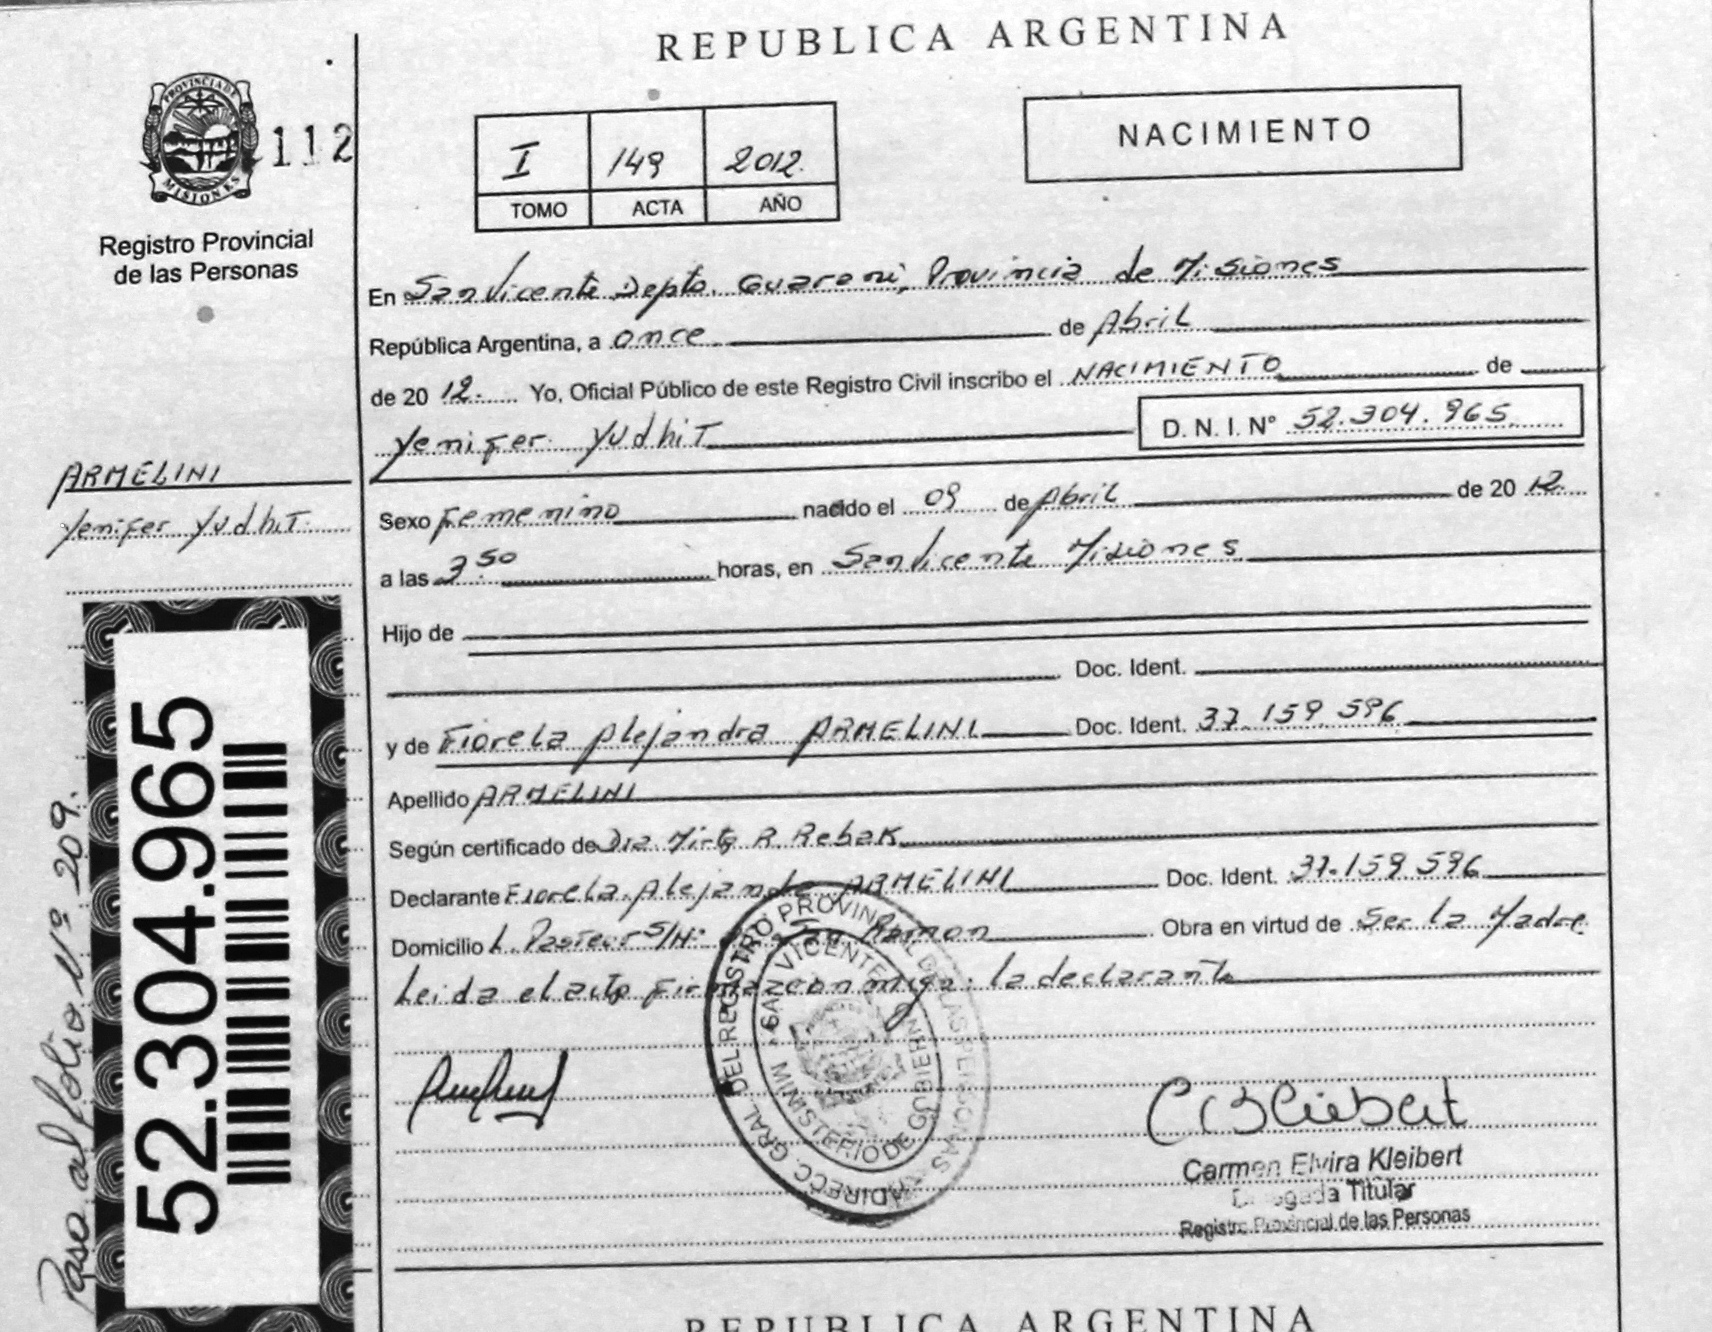 REPUBLICA ARGENTINA
PROVINCIA DE
MISIONES
112
Registro Provincial
de las Personas
I 149 2012.
TOMO ACTA AÑO
NACIMIENTO
En San Vicente Depto. Guarani, Provincia de Misiones
República Argentina, a once de Abril
de 20 12. Yo, Oficial Público de este Registro Civil inscribo el NACIMIENTO de
Yenifer Yudhit D. N. I. Nº 52.304.965
ARMELINI
Yenifer Yudhit
Sexo Femenino nacido el 09 de Abril de 20 12.
a las 3 50 horas, en San Vicente Misiones
Hijo de
Doc. Ident.
y de Fiorela Alejandra ARMELINI Doc. Ident. 37.159.596
Apellido ARMELINI
Según certificado de Dra. Mirta R. Rebak
Declarante Fiorela Alejandra ARMELINI Doc. Ident. 37.159.596
Domicilio L. Pasteur S/Nº Ramon Obra en virtud de Ser la Madre
Leida el acta Firma conmigo: la declarante
52.304.965
Pasa al folio Nº 209.
DIRECC. GRAL DEL REGISTRO PROVINCIAL DE LAS PERSONAS
SAN VICENTE
MINISTERIO DE GOBIERNO
Carmen Elvira Kleibert
Delegada Titular
Registro Provincial de las Personas
REPUBLICA ARGENTINA